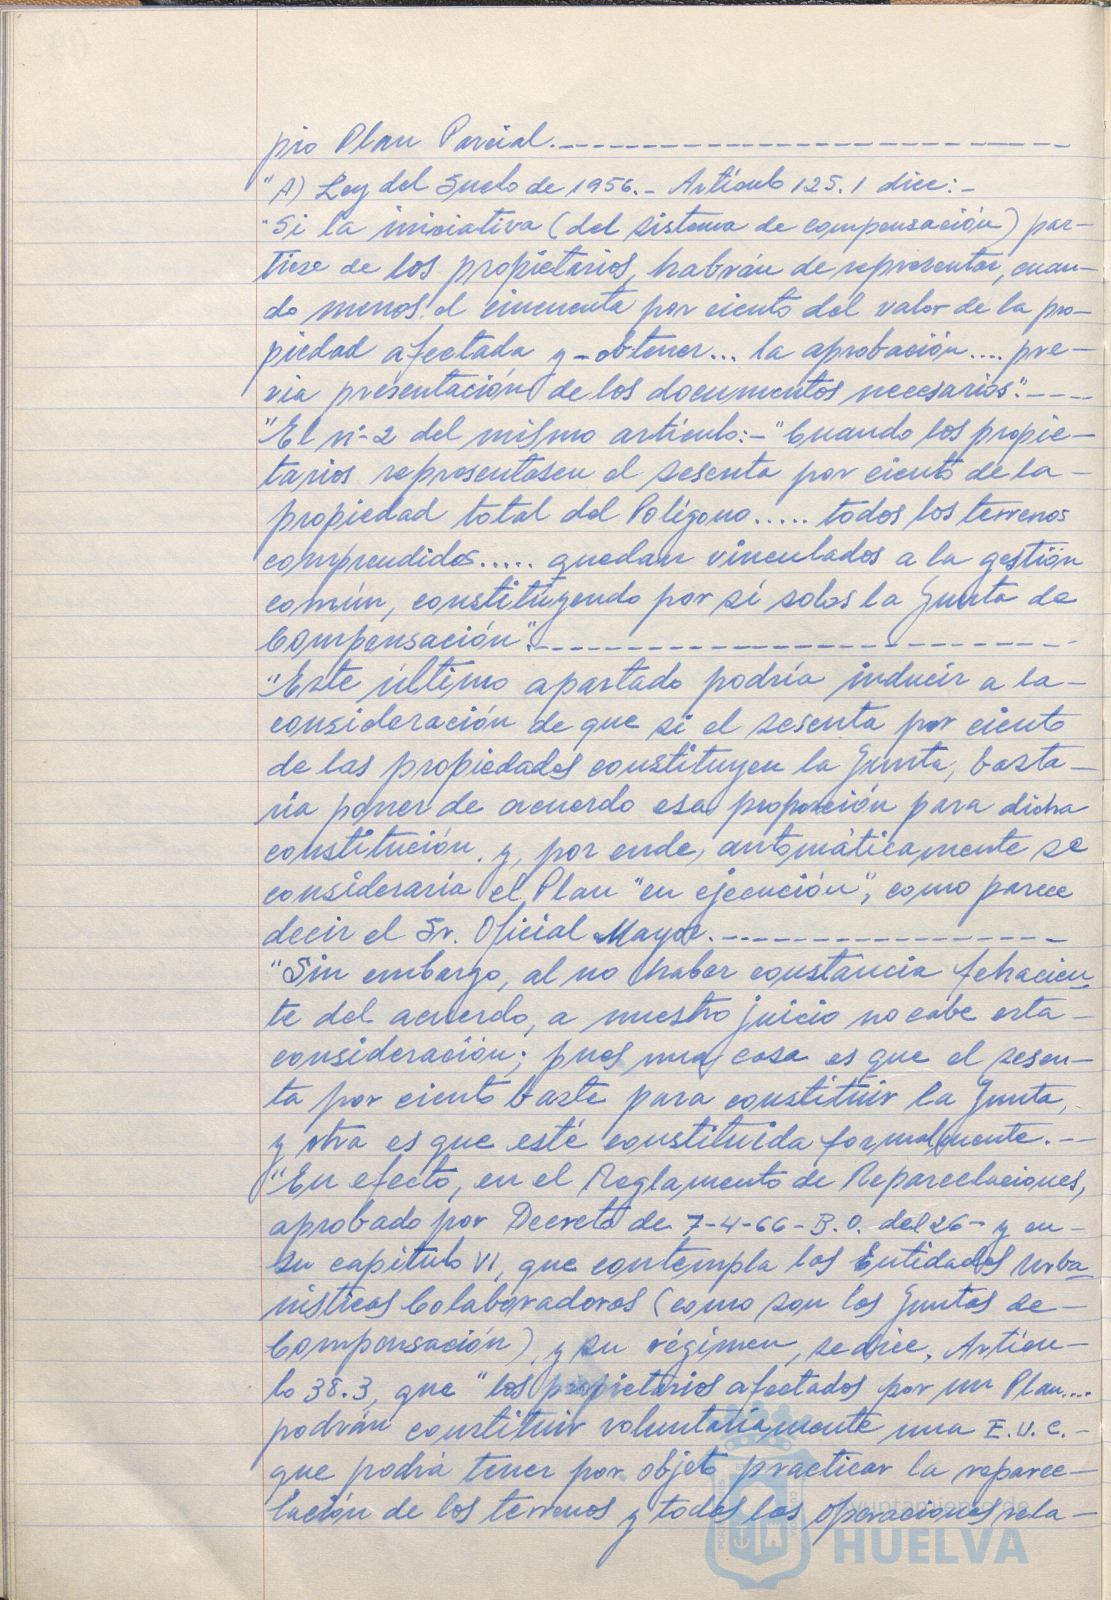 pio Plan Parcial.------------------
"A) Ley del Suelo de 1956.- Artículo 125.1 dice:-
"Si la iniciativa (del sistema de compensación) par-
tiese de los propietarios, habrán de representar, cuan-
do menos el cincuenta por ciento del valor de la pro-
piedad afectada y - obtener... la aprobación.... pre-
via presentación de los documentos necesarios".----
"El nº-2 del mismo artículo:- "Cuando los propie-
tarios representasen el sesenta por ciento de la -
propiedad total del Polígono..... todos los terrenos
comprendidos..... quedan vinculados a la gestión
común, constituyendo por sí solos la Junta de
Compensación".------------------
"Este último apartado podría inducir a la -
consideración de que si el sesenta por ciento
de las propiedades constituyen la Junta, basta-
ría poner de acuerdo esa proporción para dicha
constitución, y, por ende, automáticamente se
consideraría el Plan "en ejecución", como parece
decir el Sr. Oficial Mayor.---------------
"Sin embargo, al no haber constancia fehacien-
te del acuerdo, a nuestro juicio no cabe esta -
consideración; pues una cosa es que el sesen-
ta por ciento baste para constituir la Junta,
y otra es que esté constituida formalmente.--
"En efecto, en el Reglamento de Reparcelaciones,
aprobado por Decreto de 7-4-66-B.O. del 26- y en -
su capítulo VI, que contempla las Entidades Urba-
nísticas Colaboradoras (como son las Juntas de -
Compensación), y su régimen, se dice, Artícu-
lo 38.3, que "los propietarios afectados por un Plan....
podrán constituir voluntariamente una E.U.C. -
que podrá tener por objeto practicar la reparce-
lación de los terrenos y todas las operaciones rela-
Ayuntamiento de
HUELVA